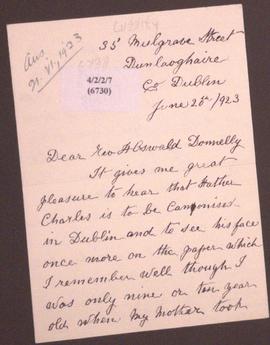 Ans
21.VI.1923
4/2/2/7
(6730)
35 Mulgrave Street
Dunleoghaire
Co Dublin
June 20th/1923
Dear Rev A Oswald Donnelly
It gives me great
pleasure to hear that Father
Charles is to be Canonised
in Dublin and to see his face
once more on the paper which
I remember well though I
was only nine or ten year
old when My Mother took